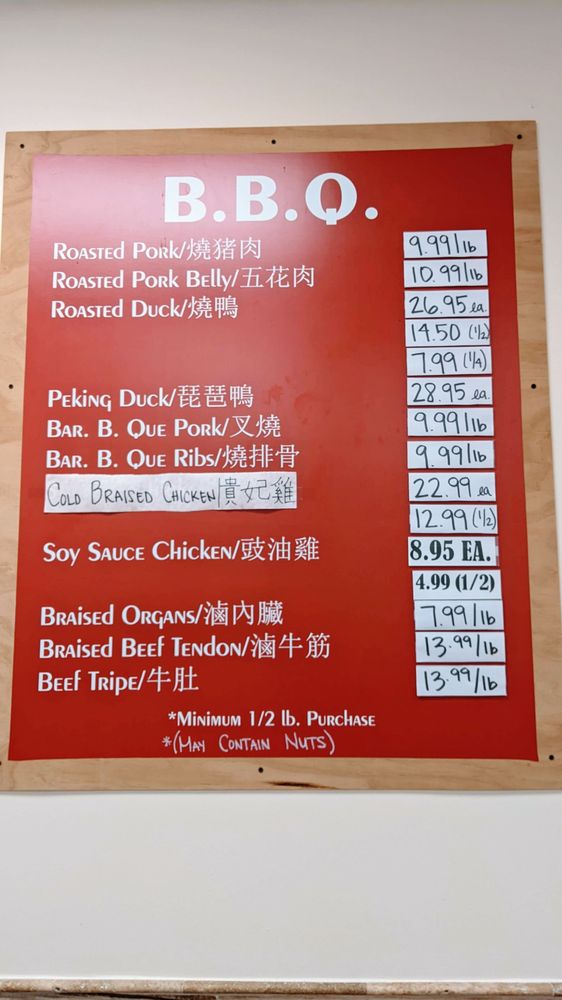 B.B.Q.
Roasted Pork/燒猪肉 9.99/lb
Roasted Pork Belly/五花肉 10.99/lb
Roasted Duck/燒鴨 26.95 ea.
14.50 (1/2)
7.99 (1/4)
Peking Duck/琵琶鴨 28.95 ea.
Bar. B. Que Pork/叉燒 9.99/lb
Bar. B. Que Ribs/燒排骨 9.99/lb
Cold Braised Chicken/貴妃雞 22.99 ea
12.99 (1/2)
Soy Sauce Chicken/豉油雞 8.95 EA.
4.99 (1/2)
Braised Organs/滷內臟 7.99/lb
Braised Beef Tendon/滷牛筋 13.99/lb
Beef Tripe/牛肚 13.99/lb
*Minimum 1/2 lb. Purchase
*(May Contain Nuts)